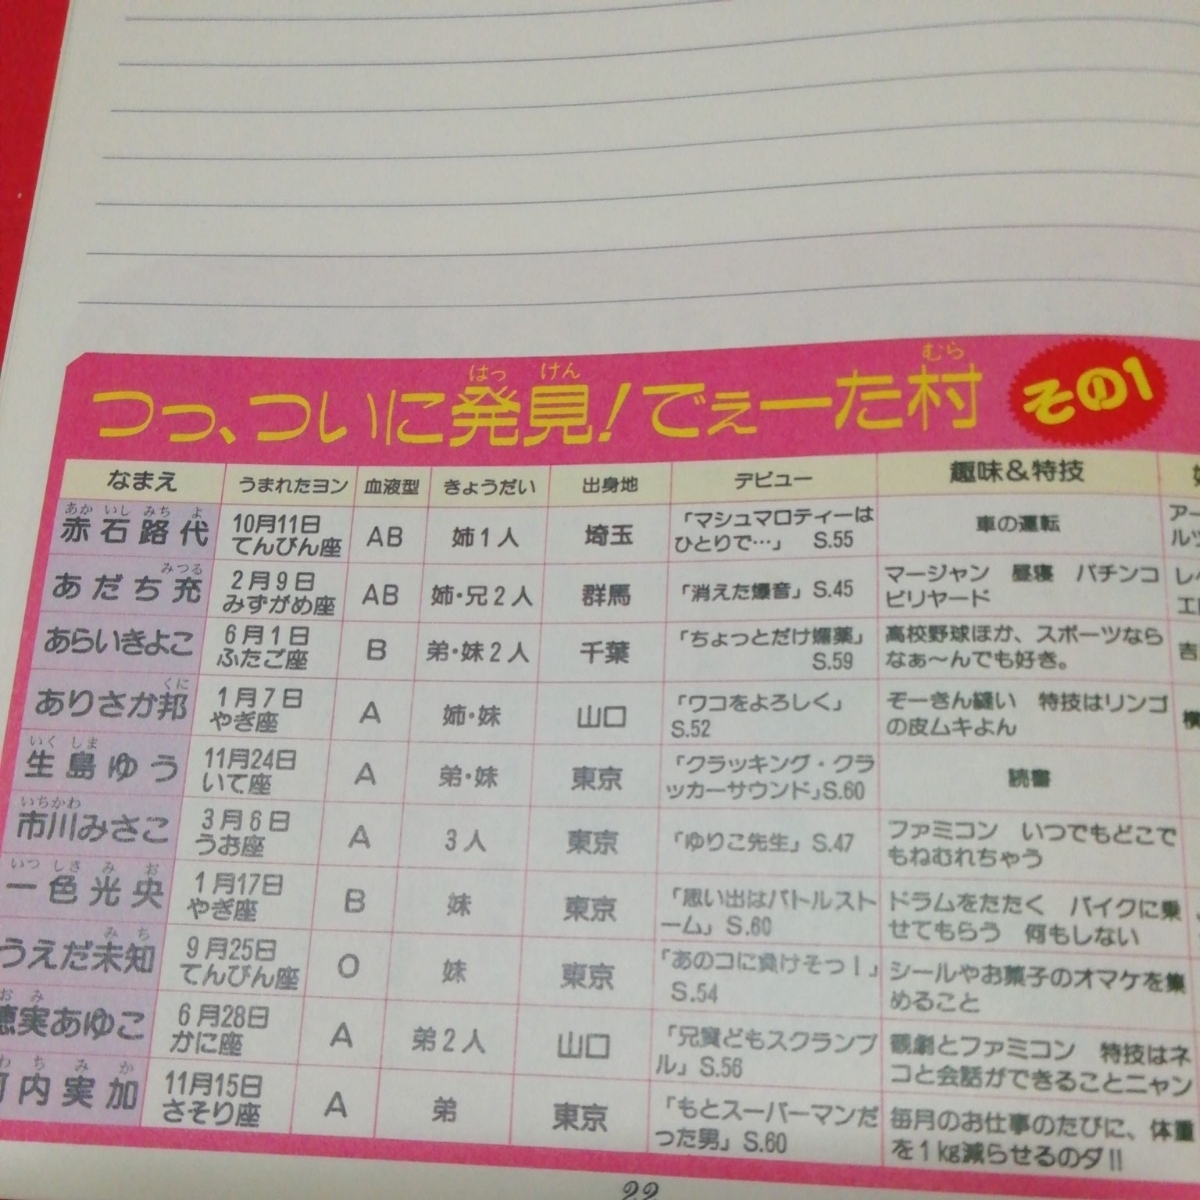 つっ、ついに発見！でぇーた村 その1
なまえ うまれたヨン 血液型 きょうだい 出身地 デビュー 趣味&特技
赤石路代 10月11日 てんびん座 AB 姉1人 埼玉 「マシュマロティーはひとりで…」 S.55 車の運転
あだち充 2月9日 みずがめ座 AB 姉・兄2人 群馬 「消えた爆音」S.45 マージャン 昼寝 パチンコ ビリヤード
あらいきよこ 6月1日 ふたご座 B 弟・妹2人 千葉 「ちょっとだけ媚薬」 S.59 高校野球ほか、スポーツならなぁ〜んでも好き。
ありさか邦 1月7日 やぎ座 A 姉・妹 山口 「ワコをよろしく」 S.52 ぞーきん縫い 特技はリンゴの皮ムキよん
生島ゆう 11月24日 いて座 A 弟・妹 東京 「クラッキング・クラッカーサウンド」S.60 読書
市川みさこ 3月6日 うお座 A 3人 東京 「ゆりこ先生」S.47 ファミコン いつでもどこでもねむれちゃう
一色光央 1月17日 やぎ座 B 妹 東京 「思い出はバトルストーム」S.60 ドラムをたたく バイクに乗せてもらう 何もしない
うえだ未知 9月25日 てんびん座 O 妹 東京 「あのコに負けそっ！」 S.54 シールやお菓子のオマケを集めること
恵実あゆこ 6月28日 かに座 A 弟2人 山口 「兄貴どもスクランブル」S.56 観劇とファミコン 特技はネコと会話ができることニャン
河内実加 11月15日 さそり座 A 弟 東京 「もとスーパーマンだった男」S.60 毎月のお仕事のたびに、体重を1kg減らせるのダ!!
22